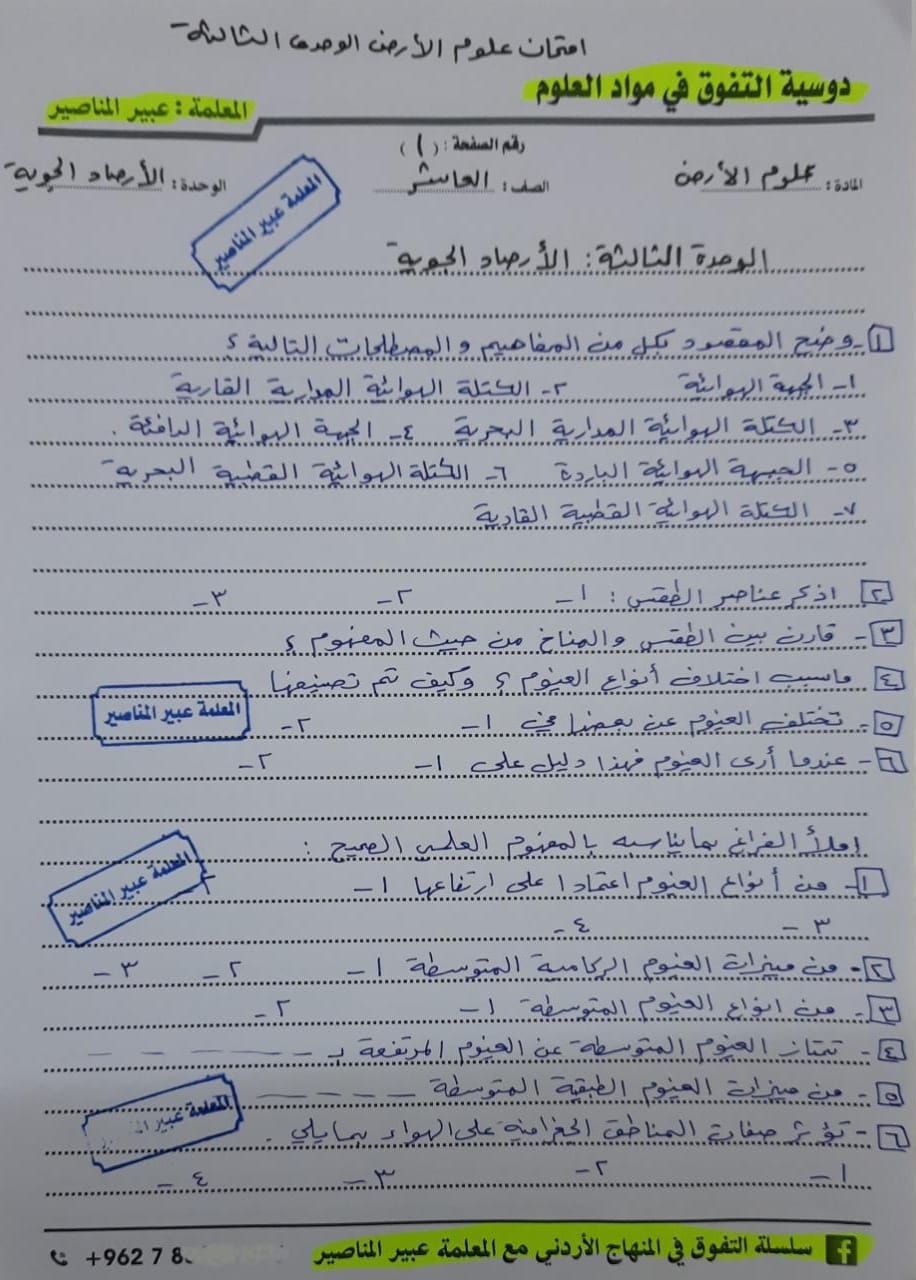 امتحان علوم الأرض الوحدة الثالثة
دوسية التفوق في مواد العلوم
المعلمة : عبير المناصير
رقم الصفحة : (١)
المادة : علوم الأرض الصف : العاشر الوحدة : الأرصاد الجوية
المعلمة عبير المناصير
الوحدة الثالثة : الأرصاد الجوية
١- وضح المقصود بكل من المفاهيم والمصطلحات التالية ؟
١- الجبهة الهوائية ٢- الكتلة الهوائية المدارية القارية
٣- الكتلة الهوائية المدارية البحرية ٤- الجبهة الهوائية الدافئة .
٥- الجبهة الهوائية الباردة ٦- الكتلة الهوائية القطبية البحرية
٧- الكتلة الهوائية القطبية القارية
٢ اذكر عناصر الطقس : ١- ٢- ٣-
٣- قارن بين الطقس والمناخ من حيث المفهوم ؟
٤- ماسبب اختلاف أنواع الغيوم ؟ وكيف تم تصنيفها
المعلمة عبير المناصير
٥- تختلف الغيوم عن بعضها في ١- ٢-
٦- عندما أرى الغيوم فهذا دليل على ١- ٢-
املأ الفراغ بما يناسبه بالمفهوم العلمي الصحيح :
المعلمة عبير المناصير
١- من أنواع الغيوم اعتمادا على ارتفاعها ١- ٢
٣- ٤-
٢- من ميزات الغيوم الركامية المتوسطة ١- ٢- ٣-
٣- من انواع الغيوم المتوسطة ١- ٢-
٤- تمتاز الغيوم المتوسطة عن الغيوم المرتفعة بـ - - - - -
٥- من ميزات الغيوم الطبقية المتوسطة - - - - -
المعلمة عبير
٦- تؤثر صفات المناطق الجغرافية على الهواء بما يلي .
١- ٢- ٣- ٤-
سلسلة التفوق في المنهاج الأردني مع المعلمة عبير المناصير
+962 7 8